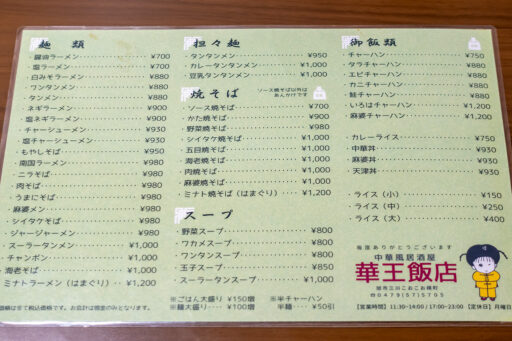 麺 類
・醤油ラーメン ¥700
・塩ラーメン ¥700
・白みそラーメン ¥880
・ワンタン ¥880
・タンメン ¥880
・ネギラーメン ¥900
・塩ネギラーメン ¥900
・チャーシューメン ¥930
・塩チャーシューメン ¥930
・もやしそば ¥950
・南国ラーメン ¥980
・ニラそば ¥980
・肉そば ¥980
・うまにそば ¥980
・麻婆メン ¥980
・シイタケそば ¥980
・ジャージャーメン ¥980
・スーラータンメン ¥1,000
・チャンポン ¥1,000
・海老そば ¥1,000
・ミナトラーメン(はまぐり) ¥1,200
担々麺
・タンタンメン ¥950
・カレータンタンメン ¥1,000
・豆乳タンタンメン ¥1,000
焼そば
ソース焼そば以外は
あんかけです
・ソース焼そば ¥700
・かた焼そば ¥900
・野菜焼そば ¥900
・シイタケ焼そば ¥1,000
・五目焼そば ¥1,000
・海老焼そば ¥1,000
・肉焼そば ¥1,000
・麻婆焼そば ¥1,000
・ミナト焼そば(はまぐり) ¥1,200
スープ
・野菜スープ ¥800
・ワカメスープ ¥800
・ワンタンスープ ¥800
・玉子スープ ¥850
・スーラータンスープ ¥1,000
※ごはん大盛り ¥150増
※麺大盛り ¥100増
※半チャーハン
半麺 ¥50引
御飯類
・チャーハン ¥750
・タラチャーハン ¥880
・エビチャーハン ¥880
・カニチャーハン ¥880
・鮭チャーハン ¥880
・いろはチャーハン ¥1,200
・麻婆チャーハン ¥1,200
・カレーライス ¥750
・中華丼 ¥930
・麻婆丼 ¥930
・天津丼 ¥930
・ライス(小) ¥150
・ライス(中) ¥250
・ライス(大) ¥400
毎度ありがとうございます
中華風居酒屋
華王飯店
☎0479(57)5705
【営業時間】11:30~14:00/17:00~23:00 【定休日】月曜日
価格は全て税込価格です。お会計は現金のみとなります。